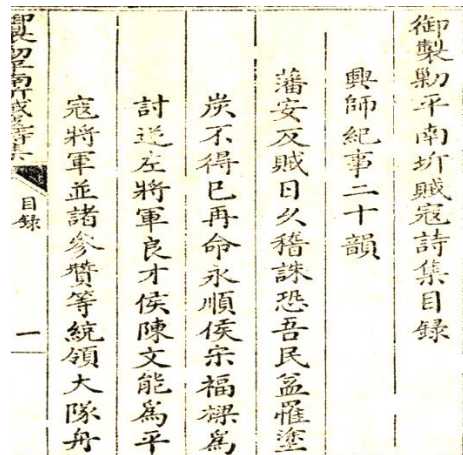 御製勦平南圻賊寇詩集目錄
興師紀事二十韻
藩安反賊日久稽誅恐吾民益罹塗
炭不得已再命永順侯宋福樑爲
討逆左將軍良才侯陳文能爲平
寇將軍並諸參贊等統領大隊舟
御製勦平南圻賊寇詩集
目錄
一